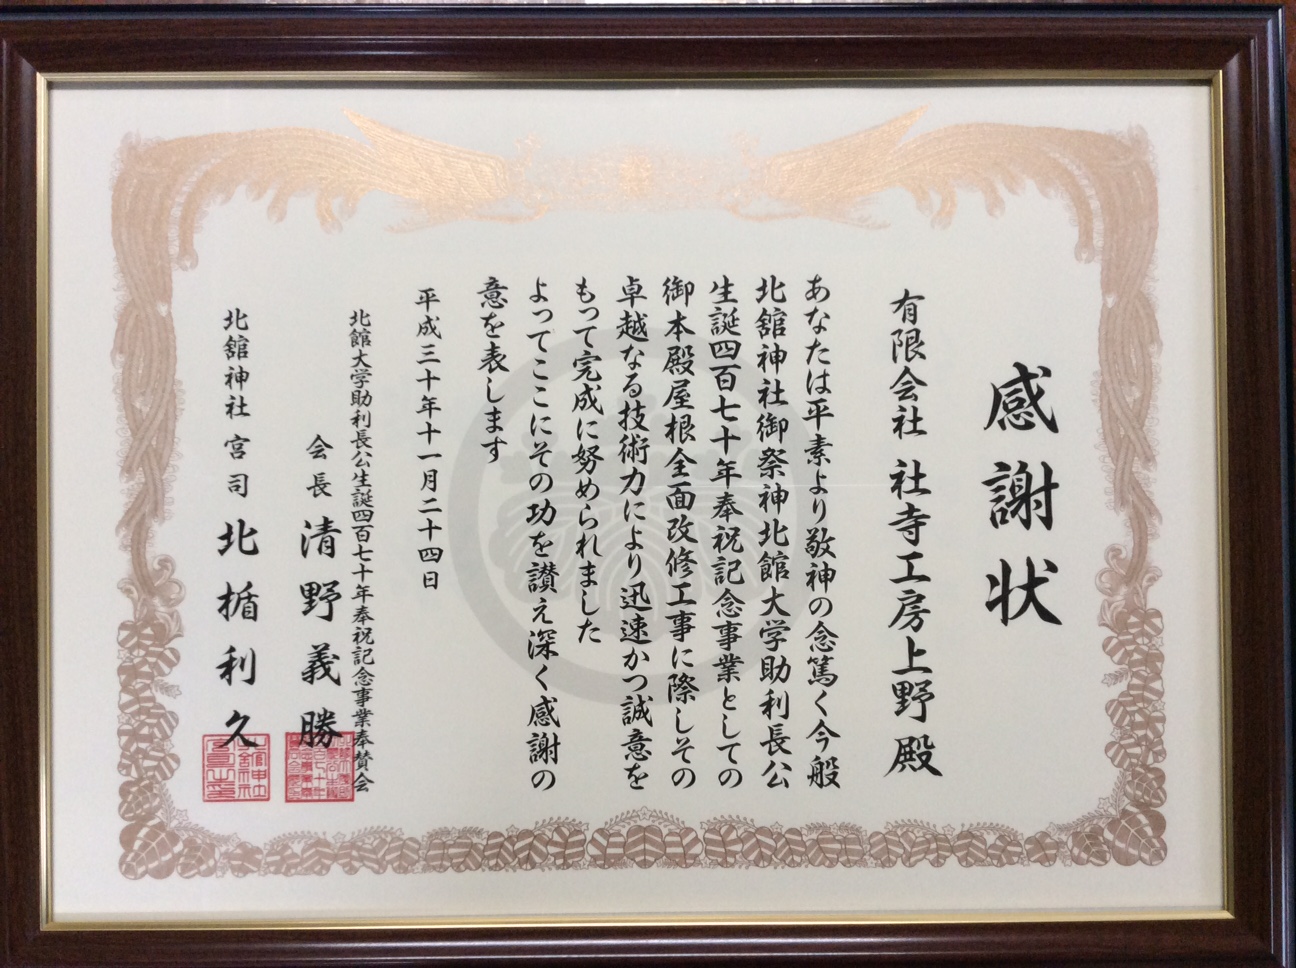 感謝状
有限会社 社寺工房上野 殿
あなたは平素より敬神の念篤く今般
北舘神社御祭神北館大学助利長公
生誕四百七十年奉祝記念事業としての
御本殿屋根全面改修工事に際しその
卓越なる技術力により迅速かつ誠意を
もって完成に努められました
よってここにその功を讃え深く感謝の
意を表します
平成三十年十一月二十四日
北館大学助利長公生誕四百七十年奉祝記念事業奉賛会
会長 清野義勝
北舘神社 宮司 北楯利久